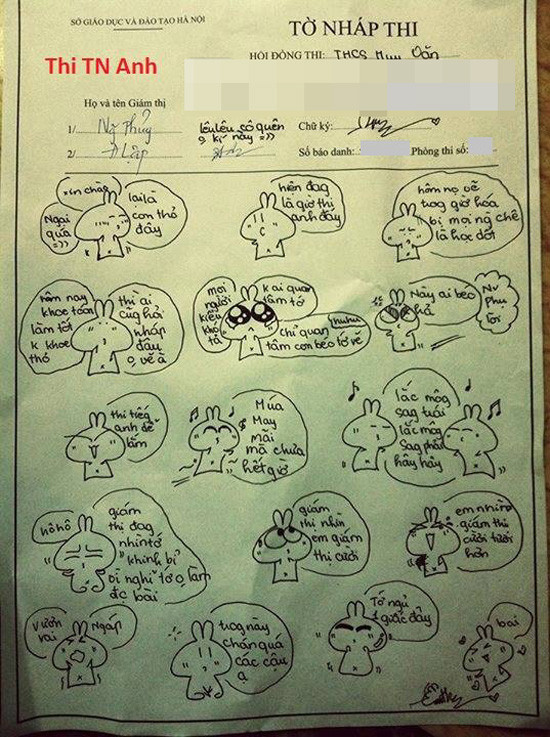 SỞ GIÁO DỤC VÀ ĐÀO TẠO HÀ NỘI
TỜ NHÁP THI
Thi TN Anh
HỘI ĐỒNG THI: THCS
Họ và tên Giám thị
1/ Ng Thúy
lêu lêu cô quên
kí này =))
Chữ ký:
2/
Số báo danh:
Phòng thi số:
xin chào
Ngại
quá
=))
lại là
con thỏ
đây
hiện đag
là giờ thi
anh đây
hôm nọ vẽ
trog giờ hóa
bị mọi ng chê
là học dốt
hôm nay
khoe toán
làm tốt
k khoe
thỏ
thì ai
cũg phải
nháp
đâu
vẽ à
mọi
người
kiểu
khó
tả
k ai quan
tâm tớ
huhu
chỉ quan
tâm con béo tớ vẽ
Này ai béo
hả
Nv
Phụ
lời
thi tiếg
anh dễ
lắm
Múa
May
mãi
mà chưa
hết giờ
lắc môg
sag trái
lắc môg
Sag phải
hây hây
hô hô
giám
thị đag
nhìn tớ
"khinh bỉ"
vì nghĩ tớ o làm
đc bài
giám
thị nhìn
em giám
thị cười
em nhìn
giám thị
cười tươi
hơn
vươn
vai
Ngáp
trog này
chán quá
các cậu
ạ
Tớ ngủ
1 giấc đây
bai